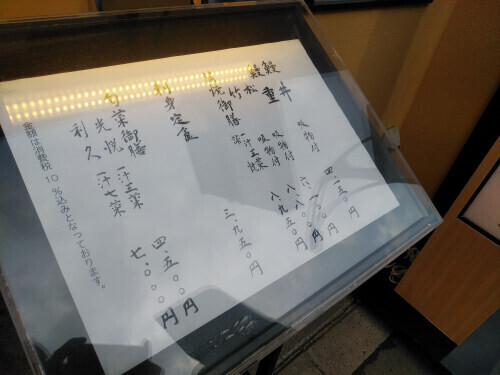 鰻丼 吸物付 四.一五〇円
鰻重
松 吸物付 六.一〇〇円
竹 吸物付 八.八〇〇円
御膳 一汁五菜 八.九五〇円
刺身定食 三.九五〇円
旬菜御膳
光悦 一汁五菜 四.五〇〇円
利久 一汁七菜 七.〇〇〇円
金額は消費税10%込みとなっております。